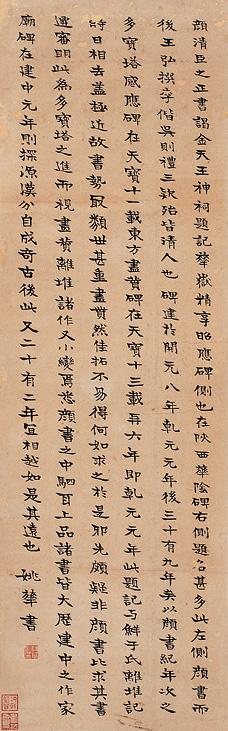 顔清臣之正書謁金天王神祠題記華嶽精享昭應碑側也在陝西華陰碑右側題名甚多此左側顔書而
後王弘撰李偕吳則禮三欵殆皆清人也碑建於開元八年乾元元年後三十有九年矣以顔書紀年次之
多寶塔感應碑在天寶十一載東方畫贊碑在天寶十三載再六年即乾元元年此題記與鮮于氏離堆記
時日相去蓋極近故書勢取類世甚重畫贊然佳拓不易得何如求之於是耶先頗疑非顔書比求其書
遷審明此為多寶塔之進而視畫贊離堆諸作又小變焉悉顔書之中駟耳上品諸書皆大歷建中之作家
廟碑在建中元年則探源漢分自成奇古後此又二十有二年宜相越如是其遠也 姚華書